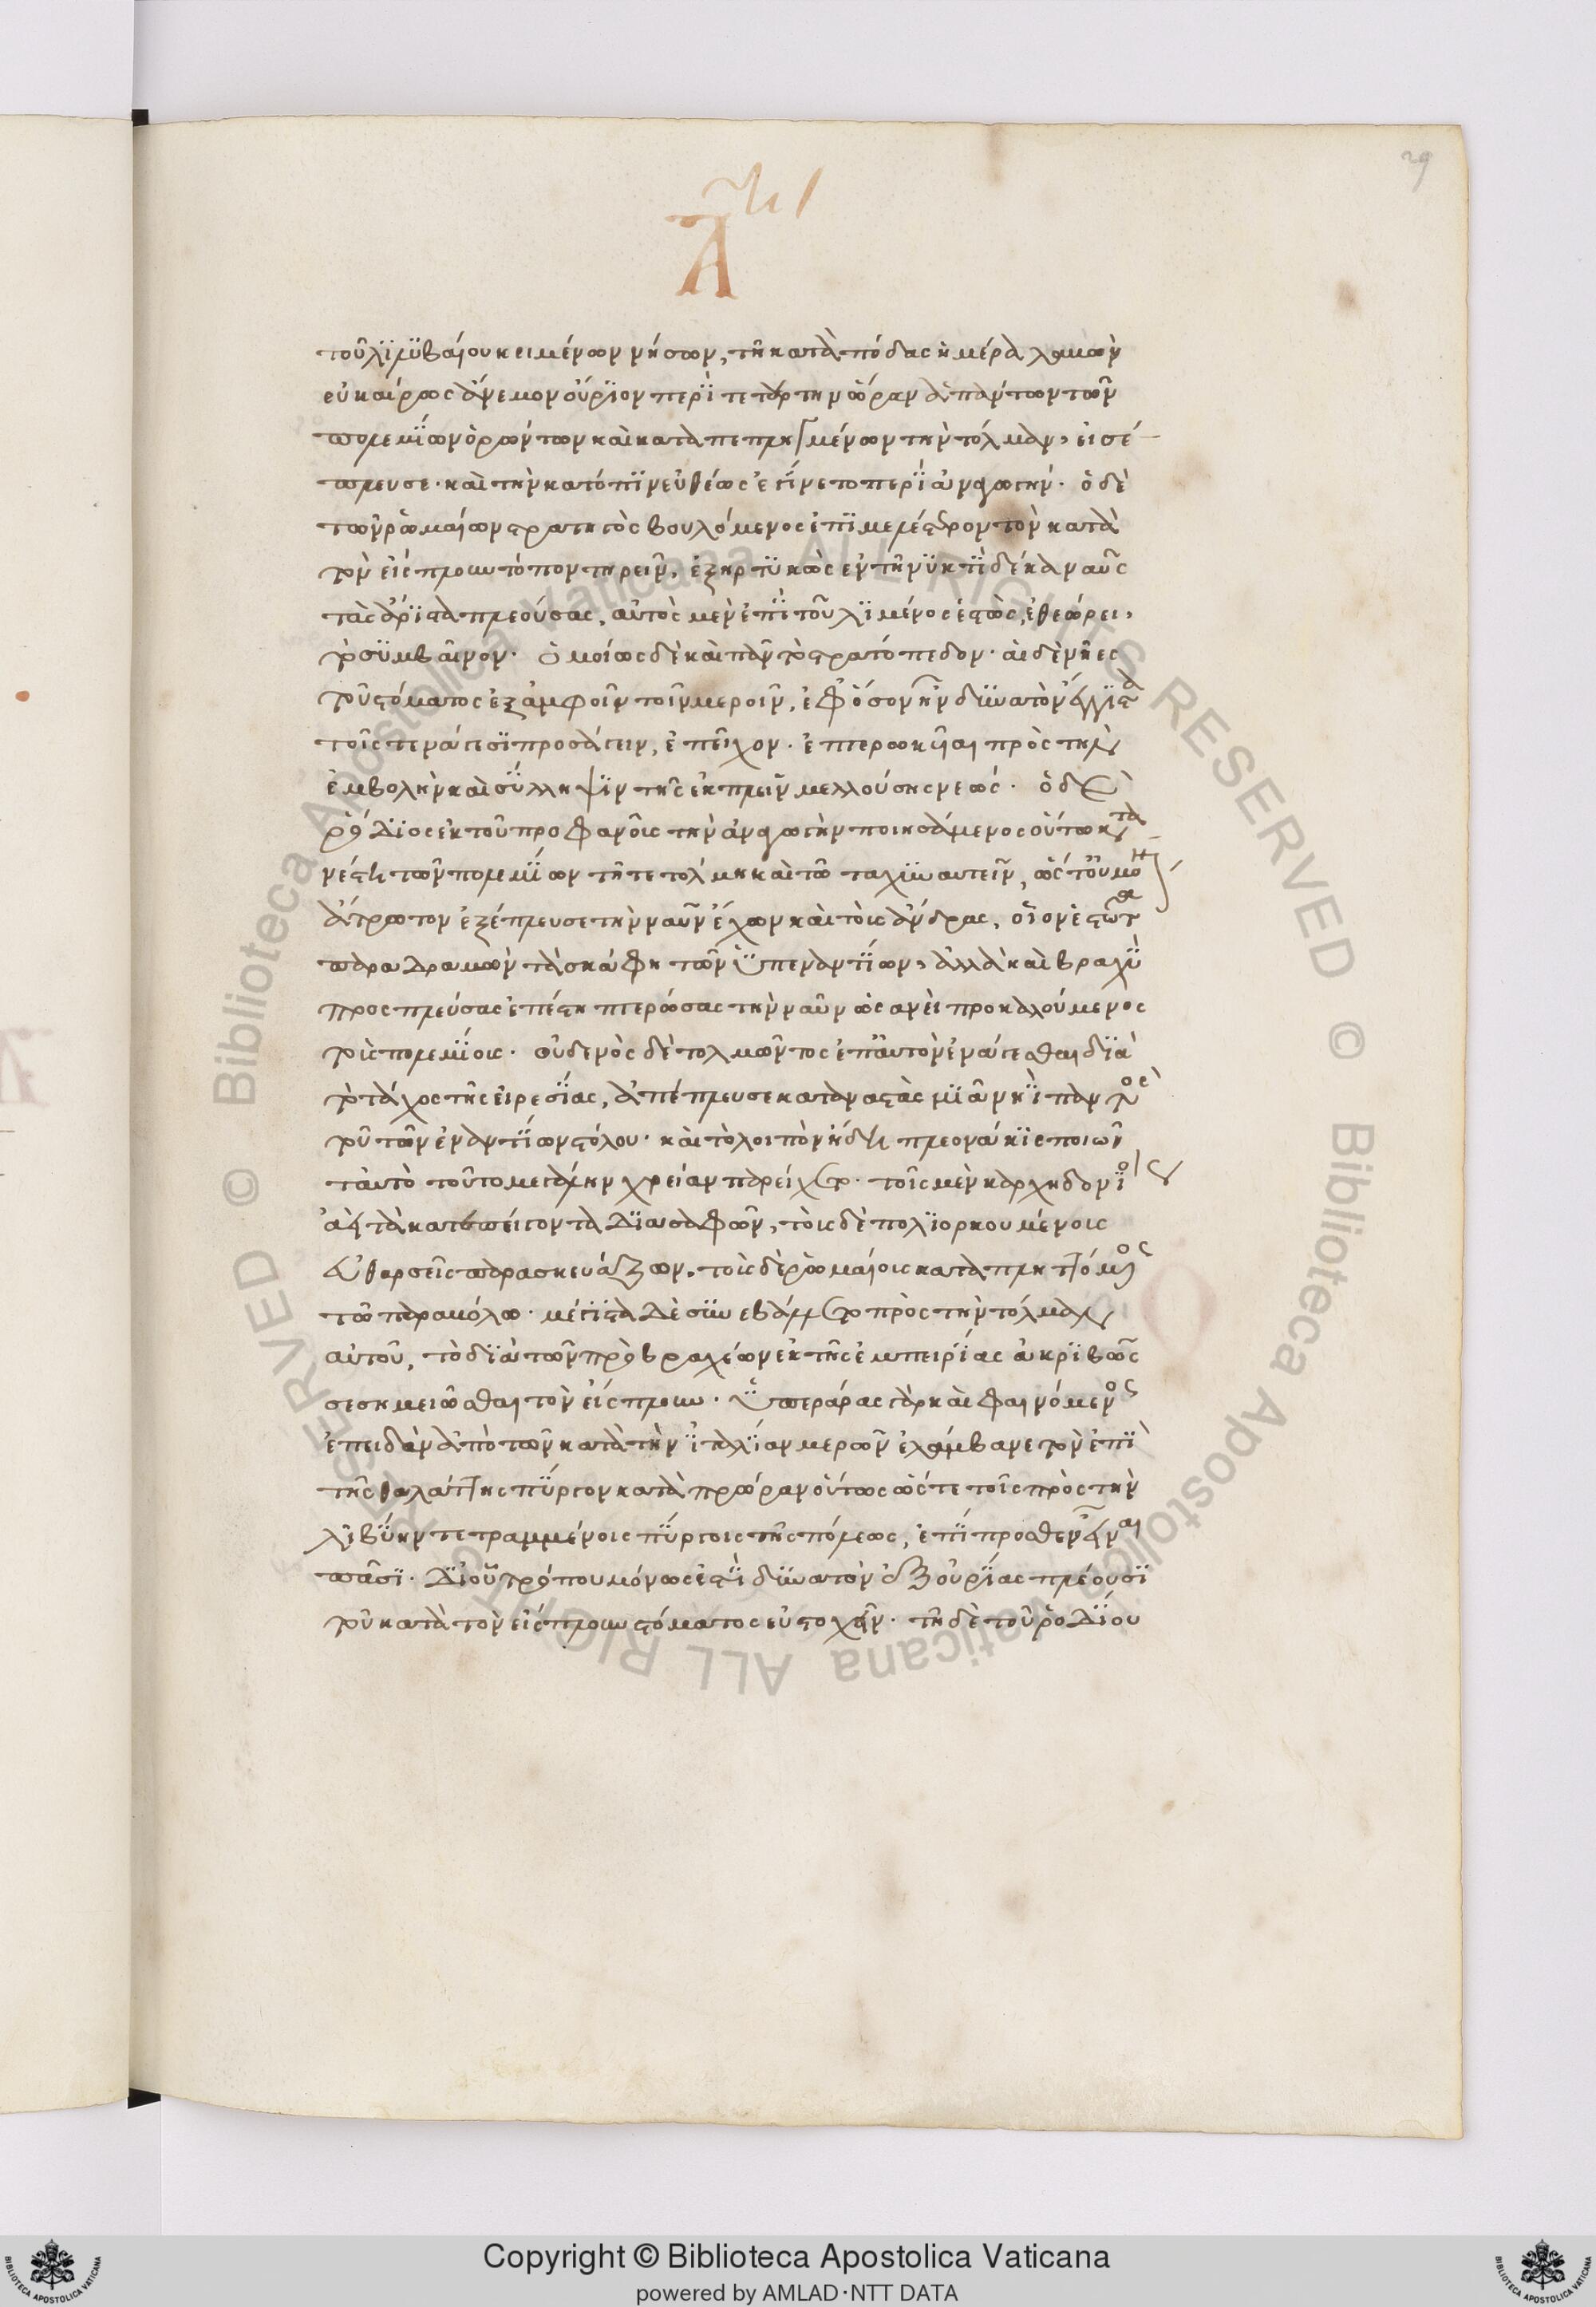 Α τῆ/
29
τοῦ λϊλϋβαίου κειμένων νήσων, τῆ κατὰ πόδας ἡμέρα λαβὼν
εὐκαίρως ἄνεμον οὔρϊον περῒ τετάρτην ὥραν ἁπάντων τῶν
πολεμΐων ὁρώντων καὶ καταπεπληγμένων τὴν τόλμαν, εἰσέ-
πλευσε· καὶ τὴν κατόπϊν εὐθέως ἐγΐνετο περῒ ἀναγωγήν· ὁ δὲ
τῶν ῥωμαίων στρατηγὸς βουλόμενος ἐπϊμελέστερον τὸν κατὰ
τὸν εἴσπλουν τόπον τηρεῖν, ἐξηρτϋκὼς ἐν τῆ νϋκτῒ δέκα ναῦς
τὰς ἄρϊστα πλεούσας, αὐτὸς μὲν ἐπῒ τοῦ λϊμένος ἑστὼς, ἐθεώρει,
τὸ σϋμβαῖνον· ὁμοίως δὲ καὶ πᾶν τὸ στρατόπεδον· αἱ δὲ νῆες
τοῦ στόματος ἐξ ἀμφοῖν τοῖν μεροῖν, ἐφόσον ἦν δϋνατὸν ἔγγϊστα
τοῖς τενάγεσϊ προσάγειν, ἐπεῖχον· ἐπτερωκυῖαι πρὸς τὴν
ἐμβολὴν καὶ σΰλληψϊν τῆς ἐκπλεῖν μελλούσης νεώς· ὁ δὲ
ῥόδϊος ἐκ τοῦ προφανοῦς τὴν ἀναγωγὴν ποιησάμενος οὕτω κατα
νέστη τῶν πολεμΐων τῆ τε τόλμη καὶ τῶ ταχϋναυτεῖν, ὥστ' οὐ μόν
ἄτρωτον ἐξέπλευσε τὴν ναῦν ἔχων καὶ τοὺς ἄνδρας, οἷον ἑστῶτα
παραδραμὼν τὰ σκάφη τῶν ὑπεναντΐων, ἀλλὰ καὶ βραχὺ
προσπλεύσας ἐπέστη πτερώσας τὴν ναῦν ὡς ανεὶ προκαλούμενος
τοὺς πολεμΐους· οὐδενὸς δὲ τολμῶντος ἐπ' αὐτὸν ἐνάγεσθαι δϊὰ
τὸ τάχος τῆς εἰρεσΐας, ἀπέπλευσε καταναστὰς μϊᾶ νηῒ παντὸς
τοῦ τῶν ἐναντΐων στόλου· καὶ τὸ λοιπὸν ἤδη πλεονάκϊς ποιῶν
ταὐτὸ τοῦτο μεγάλην χρείαν παρείχετο· τοῖς μὲν καρχηδονΐοις
ἀεὶ τὰ κατεπείγοντα διασαφῶν, τοὺς δὲ πολϊορκουμένους
εὐθαρσεῖς παρασκευάζων, τοὺς δὲ ῥωμαίους καταπληττόμενος
τῶ παραβόλω· μέγϊστα δὲ συνεβάλλετο πρὸς τὴν τόλμαν
αὐτοῦ, τὸ δϊὰ τῶν προβραχέων ἐκ τῆς ἐμπειρΐας ἀκρϊβῶς
σεσημειῶσθαι τὸν εἴσπλουν· ὑπεράρας γὰρ καὶ φαινόμενος
ἐπειδὰν ἀπὸ τῶν κατὰ τὴν ἰταλΐαν μερῶν ἐλάμβανε τὸν ἐπῒ
τῆς θαλάττης πΰργον κατὰ πρώραν οὕτως ὥστε τοῖς πρὸς τὴν
λϊβΰην τετραμμένοις πΰργοις τῆς πόλεως, ἐπΐπροσθεν εἶναι
πᾶσϊ· δϊ' οὗ τρόπου μόνως ἐστῒ δϋνατὸν ἐξ οὐρΐας πλέουσϊ
τοῦ κατὰ τὸν εἴσπλουν στόματος εὐστοχεῖν· τῆ δὲ τοῦ ῥοδΐου
Copyright © Biblioteca Apostolica Vaticana
powered by AMLAD·NTT DATA